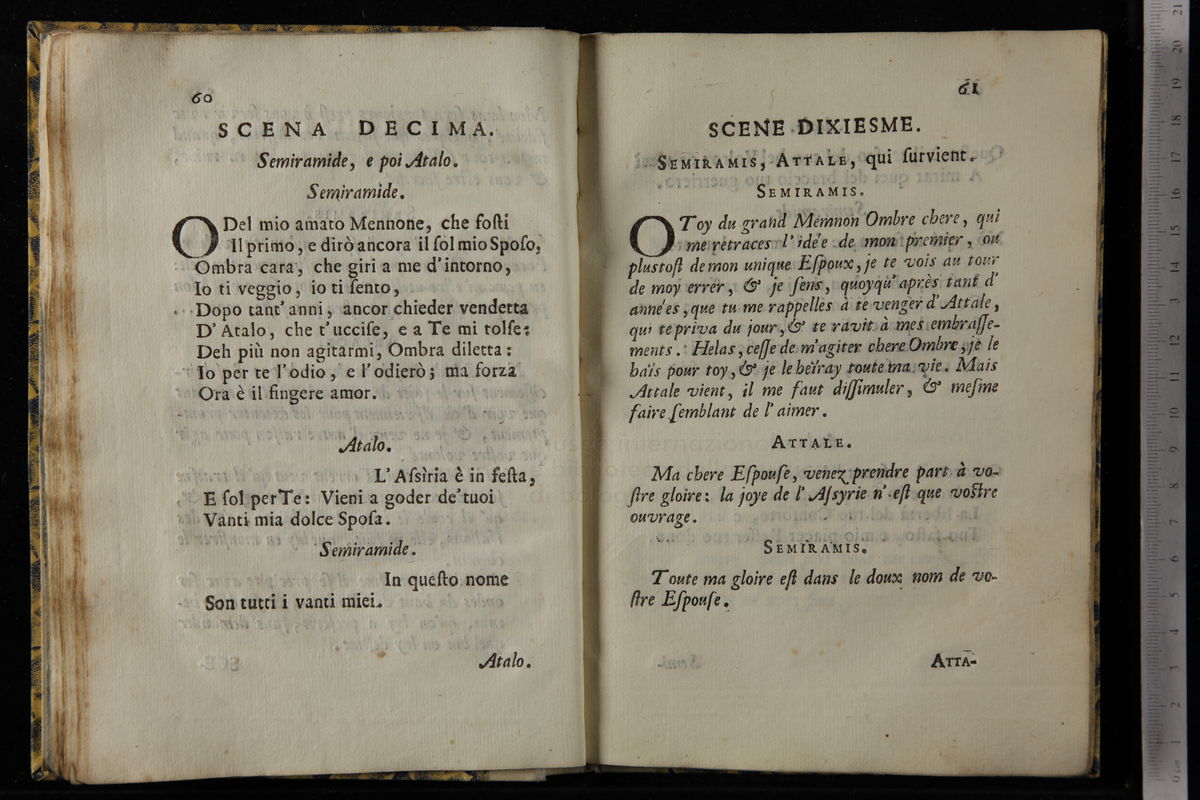 60
SCENA DECIMA.
Semiramide, e poi Atalo.
Semiramide.
ODel mio amato Mennone, che foſti
Il primo, e dirò ancora il ſol mio Spoſo,
Ombra cara, che giri a me d'intorno,
Io ti veggio, io ti ſento,
Dopo tant' anni, ancor chieder vendetta
D' Atalo, che t'ucciſe, e a Te mi tolſe:
Deh più non agitarmi, Ombra diletta:
Io per te l'odio, e l'odierò; ma forza
Ora è il fingere amor.
Atalo.
L' Aſsìria è in feſta,
E ſol per Te: Vieni a goder de' tuoi
Vanti mia dolce Spoſa.
Semiramide.
In queſto nome
Son tutti i vanti miei.
Atalo.
61
SCENE DIXIESME.
SEMIRAMIS, ATTALE, qui ſurvient.
SEMIRAMIS.
OToy du grand Memnon Ombre chere, qui
me retraces l' idée de mon premier, ou
pluſtoſt de mon unique Eſpoux, je te vois au tour
de moy errer, & je ſens, quoyqu' après tant d'
années, que tu me rappelles à te venger d' Attale,
qui te priva du jour, & te ravit à mes embraſſe-
ments. Helas, ceſſe de m'agiter chere Ombre, je le
haïs pour toy, & je le heïray toute ma vie. Mais
Attale vient, il me faut diſſimuler, & meſme
faire ſemblant de l' aimer.
ATTALE.
Ma chere Eſpouſe, venez prendre part à vo-
ſtre gloire: la joye de l' Aſsyrie n' eſt que voſtre
ouvrage.
SEMIRAMIS.
Toute ma gloire eſt dans le doux nom de vo-
ſtre Eſpouſe.
ATTA-